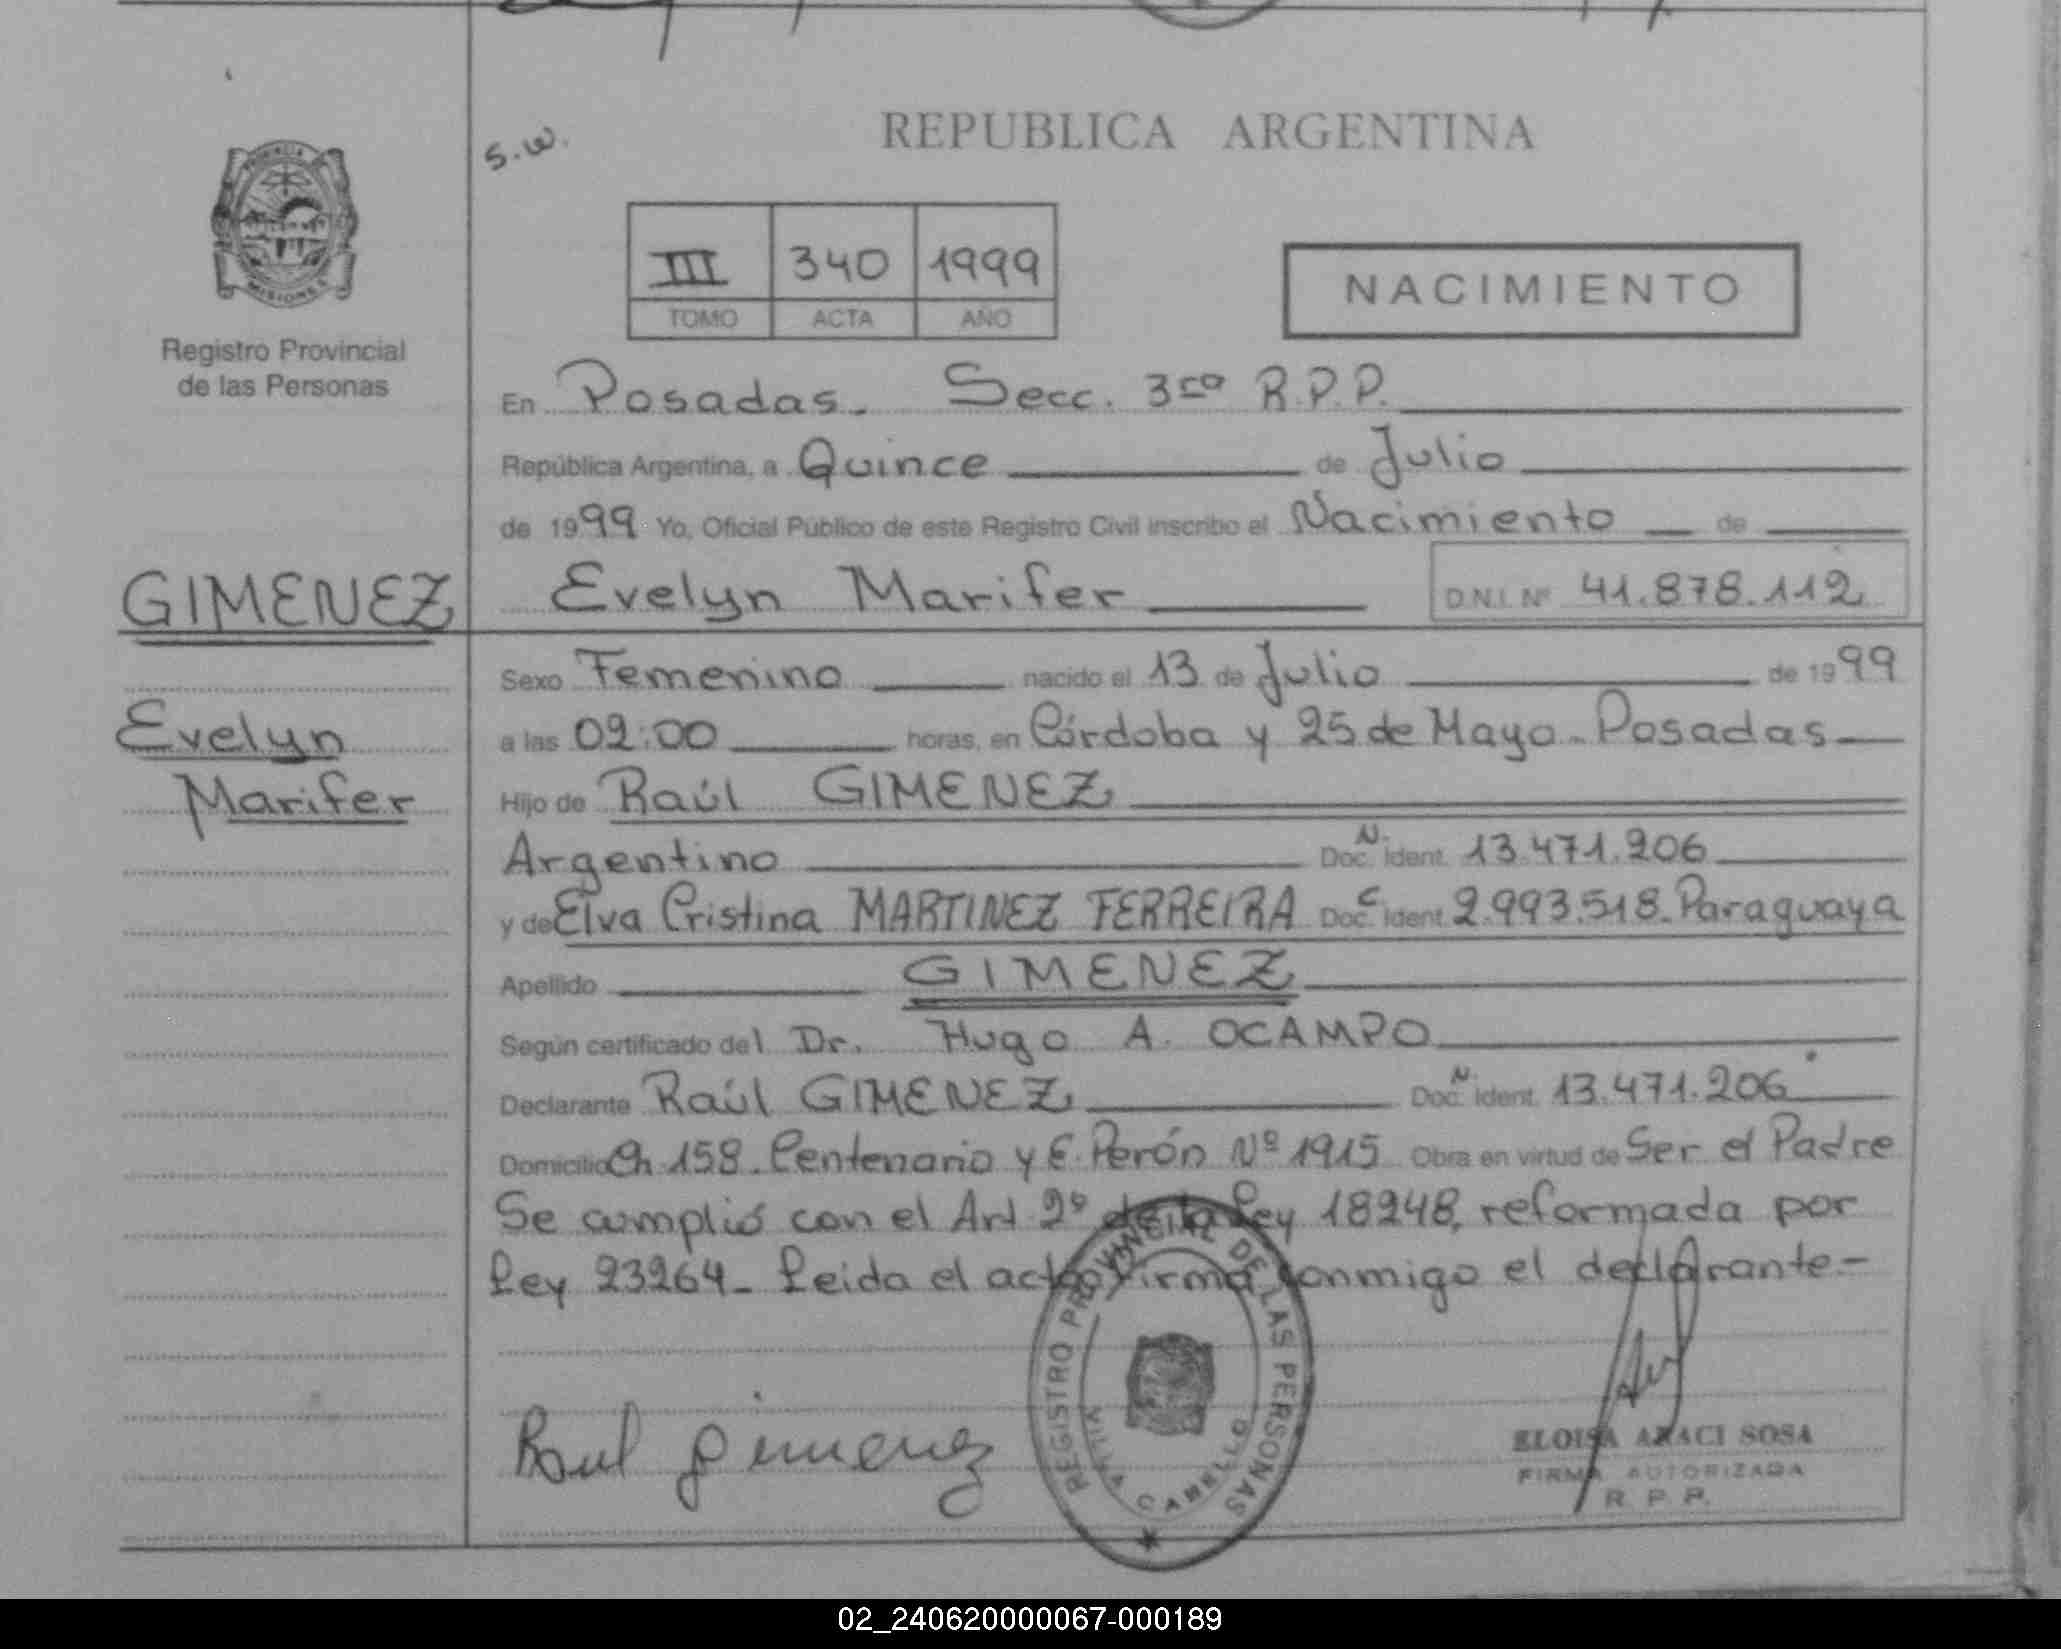 REPUBLICA ARGENTINA
S.W.
PROVINCIA
MISIONES
Registro Provincial
de las Personas
III 340 1999
TOMO ACTA AÑO
NACIMIENTO
En Posadas. Secc. 3ra R.P.P.
República Argentina, a Quince de Julio
de 1999 Yo, Oficial Público de este Registro Civil inscribo el Nacimiento de
GIMENEZ
Evelyn Marifer
D.N.I. Nº 41.878.112
Sexo Femenino nacido el 13 de Julio de 1999
Evelyn
Marifer
a las 02:00 horas, en Córdoba y 25 de Mayo - Posadas
Hijo de Raúl GIMENEZ
Argentino Doc. N. Ident. 13.471.206
y de Elva Cristina MARTINEZ FERREIRA Doc. C. Ident. 2.993.518 - Paraguaya
Apellido GIMENEZ
Según certificado del Dr. Hugo A. OCAMPO
Declarante Raúl GIMENEZ Doc. N. Ident. 13.471.206
Domicilio Ch 158 - Centenario y E. Perón Nº 1915 Obra en virtud de Ser el Padre
Se cumplió con el Art 2º de la Ley 18248, reformada por
Ley 23264 - Leida el acta firma conmigo el declarante.-
Raul Gimenez
REGISTRO PROVINCIAL DE LAS PERSONAS
VILLA CABELLO
ELOISA ARACI SOSA
FIRMA AUTORIZADA
R. P. P.
02_240620000067-000189